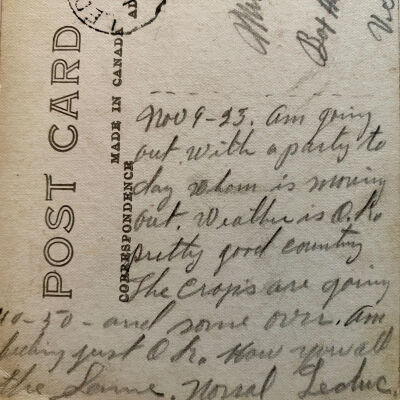 POST CARD
MADE IN CANADA
CORRESPONDENCE
AD
LED
Box
Nov 9-23. Am going
out with a party to
day whom is moving
out. Weather is O.K.
pretty good country
The crops are going
40-50- and some over. Am
feeling just O.K. How you all
the Same. Leduc.